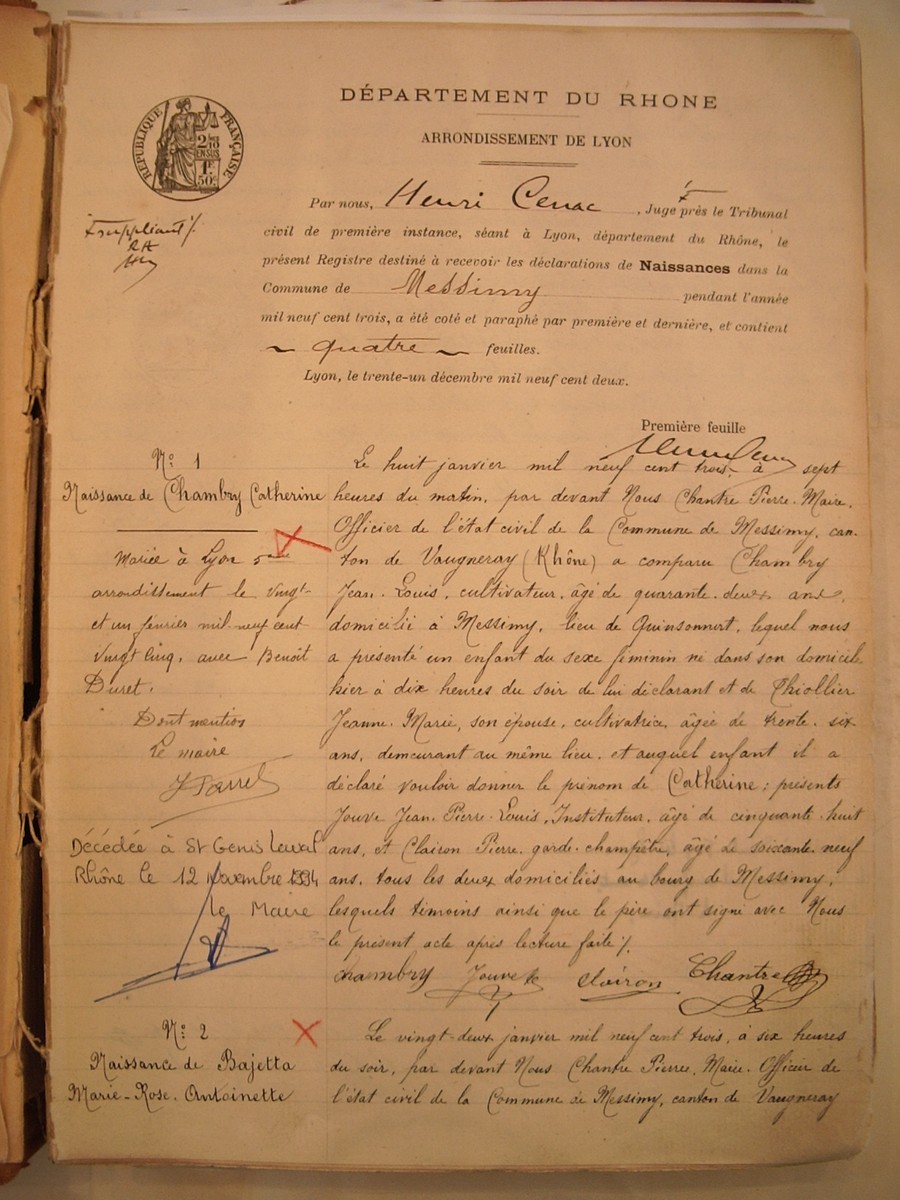 DÉPARTEMENT DU RHONE
ARRONDISSEMENT DE LYON
RÉPUBLIQUE FRANÇAISE
2/10
EN SUS
1F
50c
Par nous, Henri Cenac, Juge près le Tribunal
civil de première instance, séant à Lyon, département du Rhône, le
présent Registre destiné à recevoir les déclarations de Naissances dans la
Commune de Messimy pendant l'année
mil neuf cent trois, a été coté et paraphé par première et dernière, et contient
quatre feuilles.
Lyon, le trente-un décembre mil neuf cent deux.
suppliant
Première feuille
N° 1
Naissance de Chambry Catherine
Mariée à Lyon 5me
arrondissement le vingt-
et un février mil neuf cent
vingt cinq, avec Benoît
Duret.
Dont mention
Le maire
Décédée à St Genis Laval
Rhône le 12 Novembre 1994
Le Maire
Le huit janvier mil neuf cent trois, à sept
heures du matin, par devant Nous Chantre Pierre, Maire,
Officier de l'état civil de la Commune de Messimy, can-
ton de Vaugneray (Rhône) a comparu Chambry
Jean-Louis, cultivateur, âgé de quarante-deux ans,
domicilié à Messimy, lieu de Quinsonnat, lequel nous
a présenté un enfant du sexe féminin né dans son domicile
hier à dix heures du soir de lui déclarant et de Chiollier
Jeanne-Marie, son épouse, cultivatrice, âgée de trente-six
ans, demeurant au même lieu, et auquel enfant il a
déclaré vouloir donner le prénom de Catherine; présents
Jouve Jean-Pierre-Louis, Instituteur, âgé de cinquante-huit
ans, et Clairon Pierre, garde-champêtre, âgé de soixante-neuf
ans, tous les deux domiciliés au bourg de Messimy,
lesquels témoins ainsi que le père ont signé avec Nous
le présent acte après lecture faite./.
Chambry Jouve Clairon Chantre
N° 2
Naissance de Bajetta
Marie-Rose-Antoinette
Le vingt-deux janvier mil neuf cent trois, à six heures
du soir, par devant Nous Chantre Pierre, Maire, Officier de
l'état civil de la Commune de Messimy, canton de Vaugneray